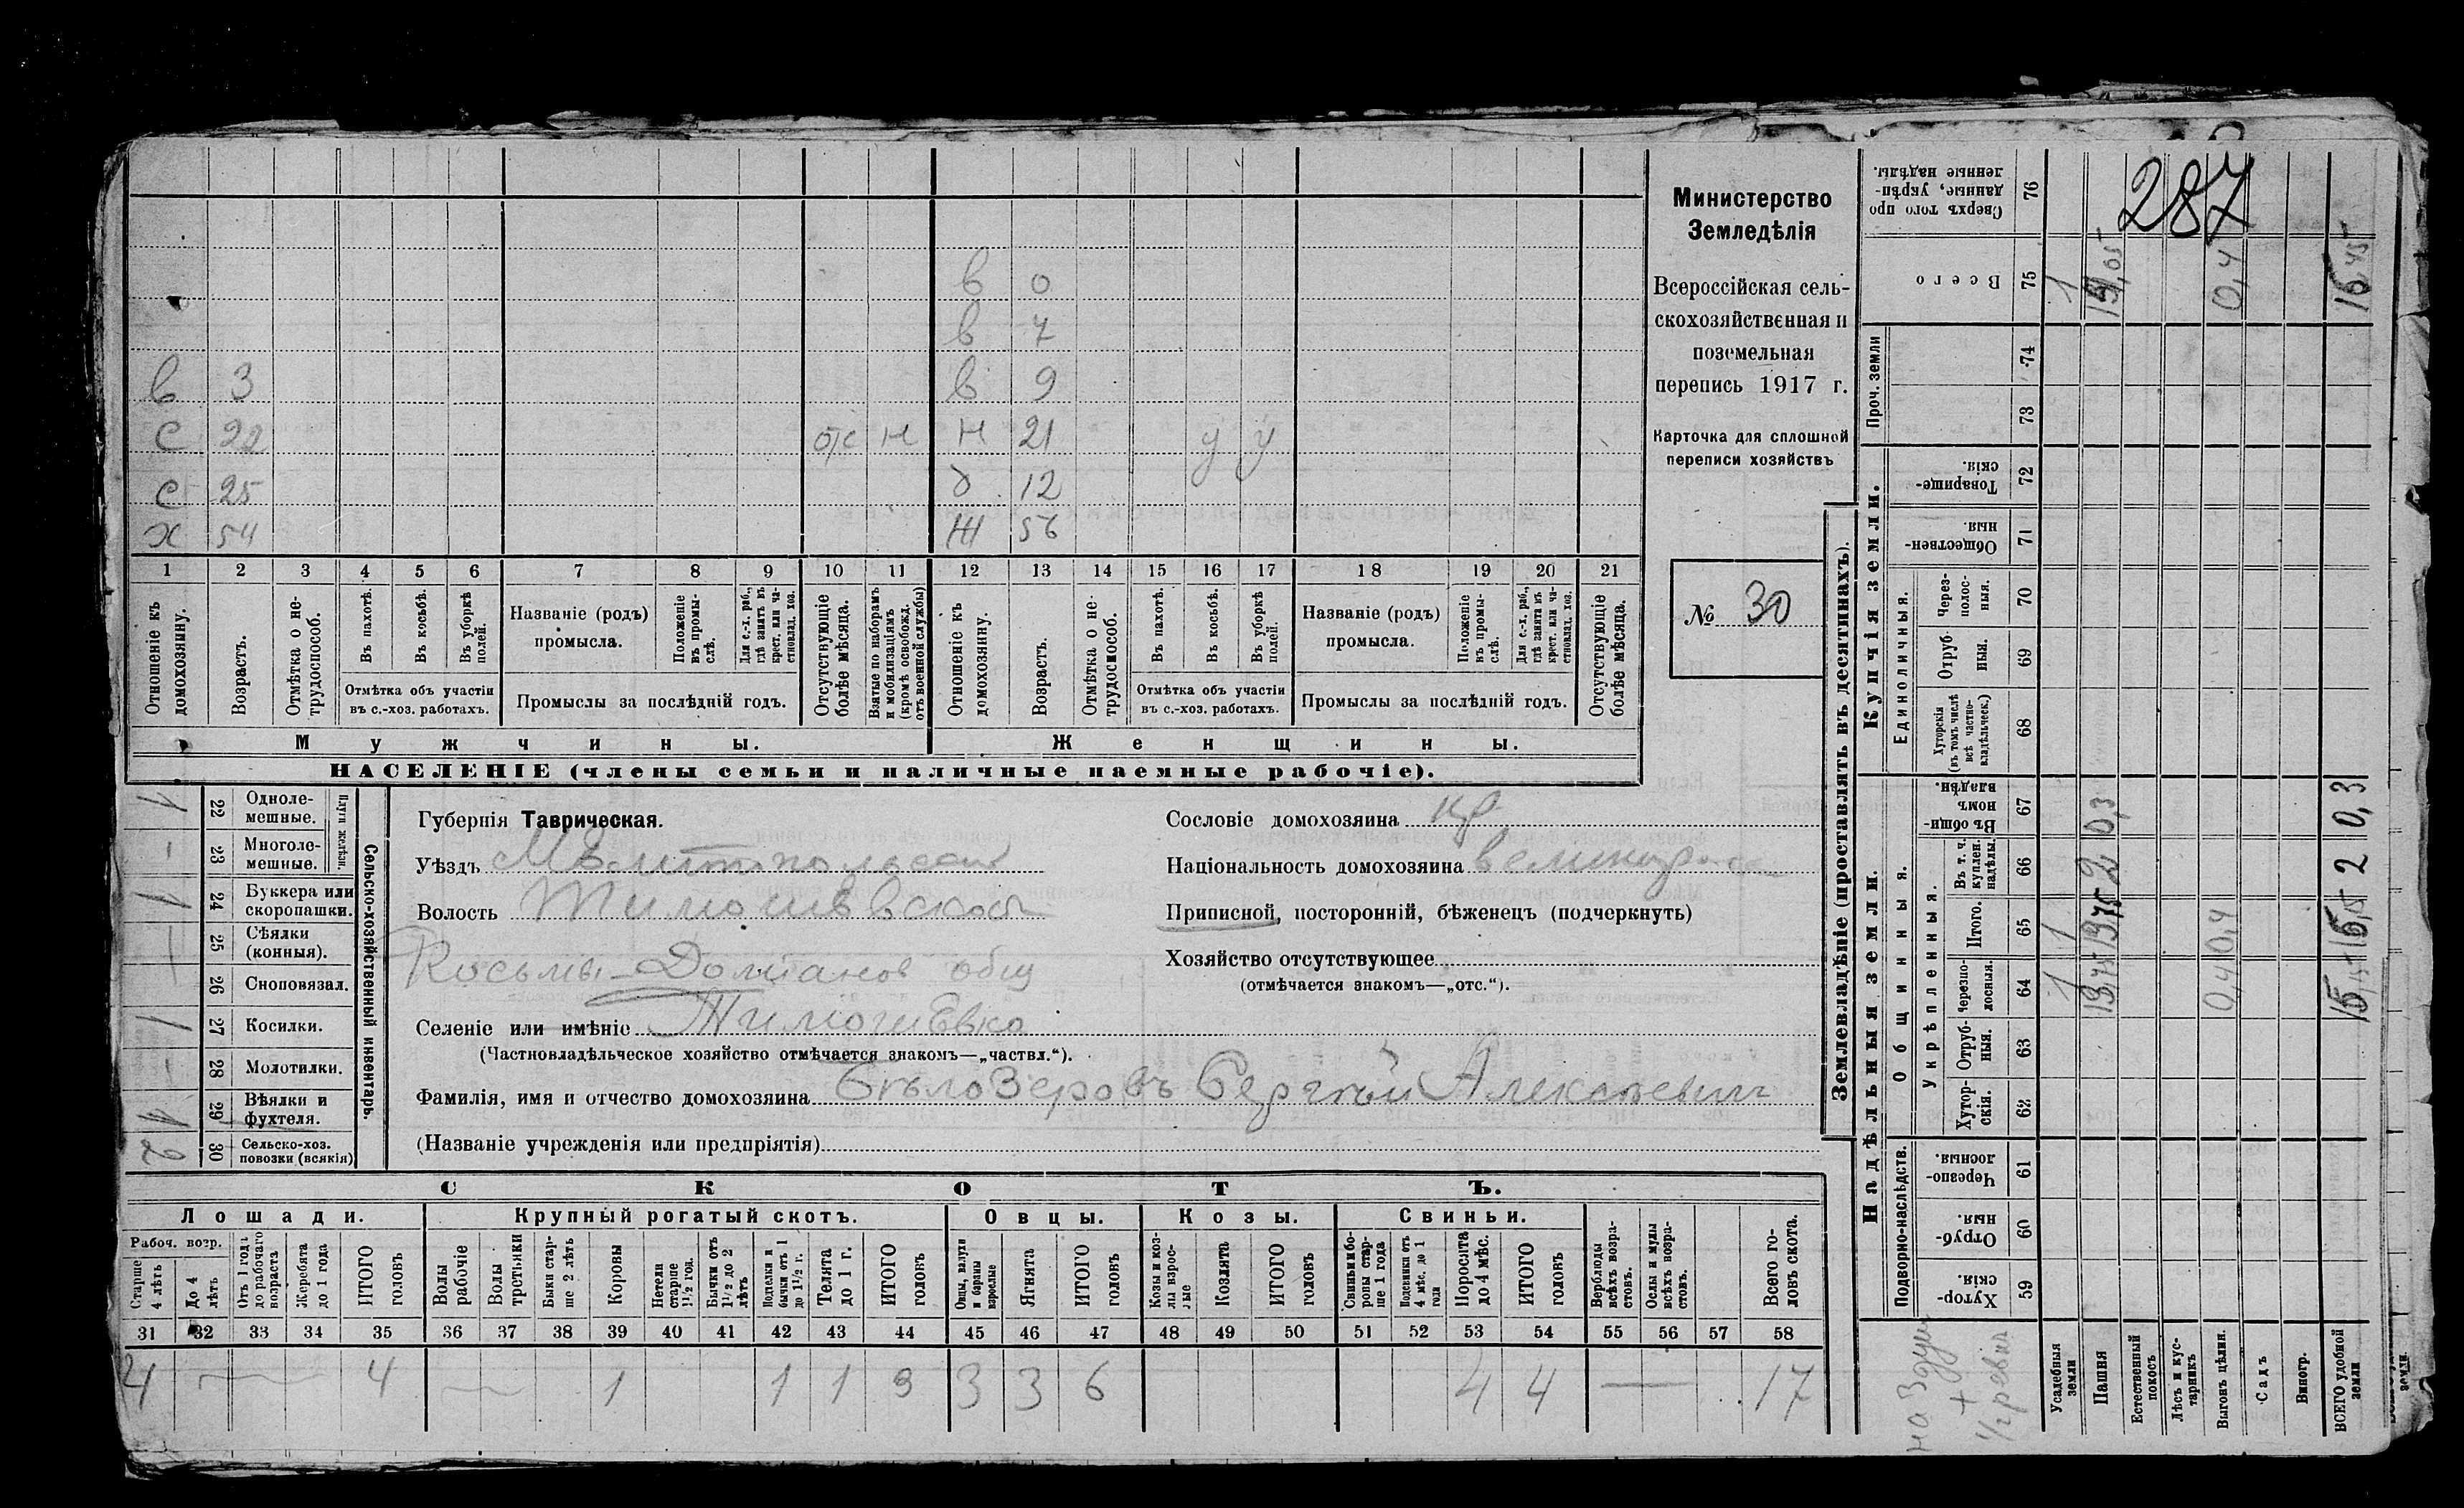 287
Министерство
Земледѣлія
Всероссійская сель-
скохозяйственная и
поземельная
перепись 1917 г.
Карточка для сплошной
переписи хозяйствъ
№ 30
в 0
в 7
в 3 в 9
с 22 отс н н 21 у у
с 25 д 12
х 54 ж 56
1 2 3 4 5 6 7 8 9 10 11 12 13 14 15 16 17 18 19 20 21
Отношеніе къ домохозяину.
Возрастъ.
Отмѣтка о не-трудоспособ.
Въ пахотѣ.
Въ косьбѣ.
Въ уборкѣ полей.
Отмѣтка объ участіи
въ с.-хоз. работахъ.
Названіе (родъ)
промысла.
Положеніе въ промы-слѣ.
Для с.-х. раб., гдѣ занятъ въ крест. или ча-стновлад. хоз.
Промыслы за послѣдній годъ.
Отсутствующіе болѣе мѣсяца.
Взятые по наборамъ и мобилизаціямъ (кромѣ освобожд. отъ военной службы)
Отношеніе къ домохозяину.
Возрастъ.
Отмѣтка о не-трудоспособ.
Въ пахотѣ.
Въ косьбѣ.
Въ уборкѣ полей.
Отмѣтка объ участіи
въ с.-хоз. работахъ.
Названіе (родъ)
промысла.
Положеніе въ промы-слѣ.
Для с.-х. раб., гдѣ занятъ въ крест. или ча-стновлад. хоз.
Промыслы за послѣдній годъ.
Отсутствующіе болѣе мѣсяца.
Мужчины. Женщины.
НАСЕЛЕНІЕ (члены семьи и наличные наемные рабочіе).
Сельско-хозяйственный инвентарь.
Плуги желѣзн.
1 22 Однолемешные.
- 23 Многолемешные.
1 24 Буккера или скоропашки.
25 Сѣялки (конныя).
26 Сноповязал.
1 27 Косилки.
- 28 Молотилки.
1 29 Вѣялки и фухтеля.
2 30 Сельско-хоз. повозки (всякія)
Губернія Таврическая.
Уѣздъ Мелитопольский
Волость Тимошевской
Косьмы-Домианов общ
Селеніе или имѣніе Тимошевка
(Частновладѣльческое хозяйство отмѣчается знакомъ—„частвл.“).
Фамилія, имя и отчество домохозяина Бѣлозеровъ Сергѣй Алексѣевич
(Названіе учрежденія или предпріятія)
Сословіе домохозяина кр
Національность домохозяина
Приписной, посторонній, бѣженецъ (подчеркнуть)
Хозяйство отсутствующее
(отмѣчается знакомъ—„отс.“).
СКОТЪ.
Лошади. Крупный рогатый скотъ. Овцы. Козы. Свиньи.
Рабоч. возр.
Старше 4 лѣтъ
До 4 лѣтъ
Отъ 1 года до рабочаго возраста
Жеребята до 1 года
ИТОГО головъ
Волы рабочіе
Волы третьяки
Быки стар-ше 2 лѣтъ
Коровы
Нетели старше 1½ год.
Бычки отъ 1½ до 2 лѣтъ
Подтелки и бычки отъ 1 до 1½ г.
Телята до 1 г.
ИТОГО головъ
Овцы, валухи и бараны взрослые
Ягнята
ИТОГО головъ
Козы и коз-лы взрос-лые
Козлята
ИТОГО головъ
Свиньи и бо-ровы стар-ше 1 года
Подсвинки отъ 4 мѣс. до 1 года
Поросята до 4 мѣс.
ИТОГО головъ
Верблюды всѣхъ возра-стовъ.
Ослы и мулы всѣхъ возра-стовъ.
Всего го-ловъ скота.
31 32 33 34 35 36 37 38 39 40 41 42 43 44 45 46 47 48 49 50 51 52 53 54 55 56 57 58
4 4 1 1 1 3 3 3 6 4 4 17
Землевладѣніе (проставлять въ десятинахъ).
Надѣльныя земли. Купчія земли. Проч. земли
Подворно-наслѣдств. Общинныя. Укрѣпленныя. Единоличныя.
Хутор-скія. 59
Отруб-ныя. 60
Черезпо-лосныя. 61
Хутор-скія. 62
Отруб-ныя. 63
Черезпо-лосныя. 64
Итого. 65
Въ т. ч. куплен. надѣлы. 66
Въ общин-номъ владѣн. 67
Хуторскія (въ томъ числѣ всѣ частно-владѣльческ.) 68
Отруб-ныя. 69
Через-полос-ныя. 70
Обществен-ныя. 71
Товарище-скія. 72
73
74
Всего 75
Сверхъ того про-данные, укрѣп-ленные надѣлы. 76
на 3 души
+
Усадебныя земли 1 1 1
Пашня 13,75 13,75 2 0,3
Естественный покосъ
Лѣсъ и кус-тарникъ
Выгонъ цѣлин. 0,4 0,4 0,4
Садъ
Виногр.
ВСЕГО удобной земли 15,15 15,15 2 0,3